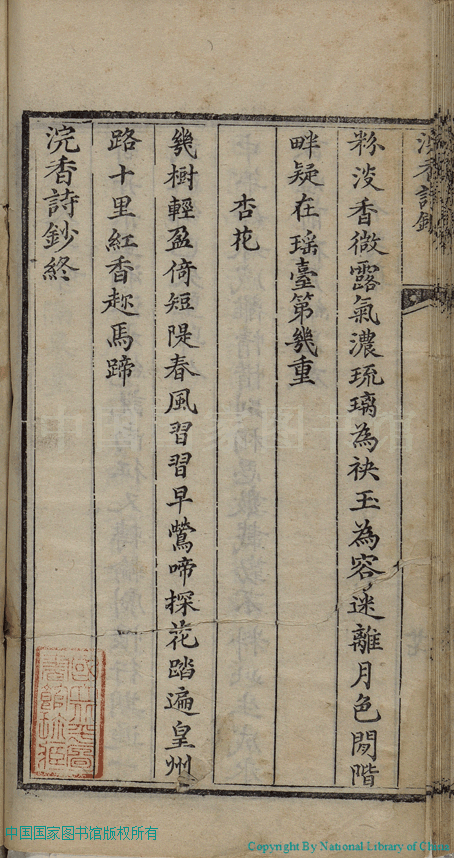 浣香詩鈔
粉淡香微露氣濃琉璃為袂玉為容迷離月色閒階
畔疑在瑶臺第幾重
杏花
幾樹輕盈倚短隄春風習習早鶯啼探花踏遍皇州
路十里紅香趂馬蹄
浣香詩鈔終
中国国家图书馆
中国国家图书馆版权所有
Copyright By National Library of China